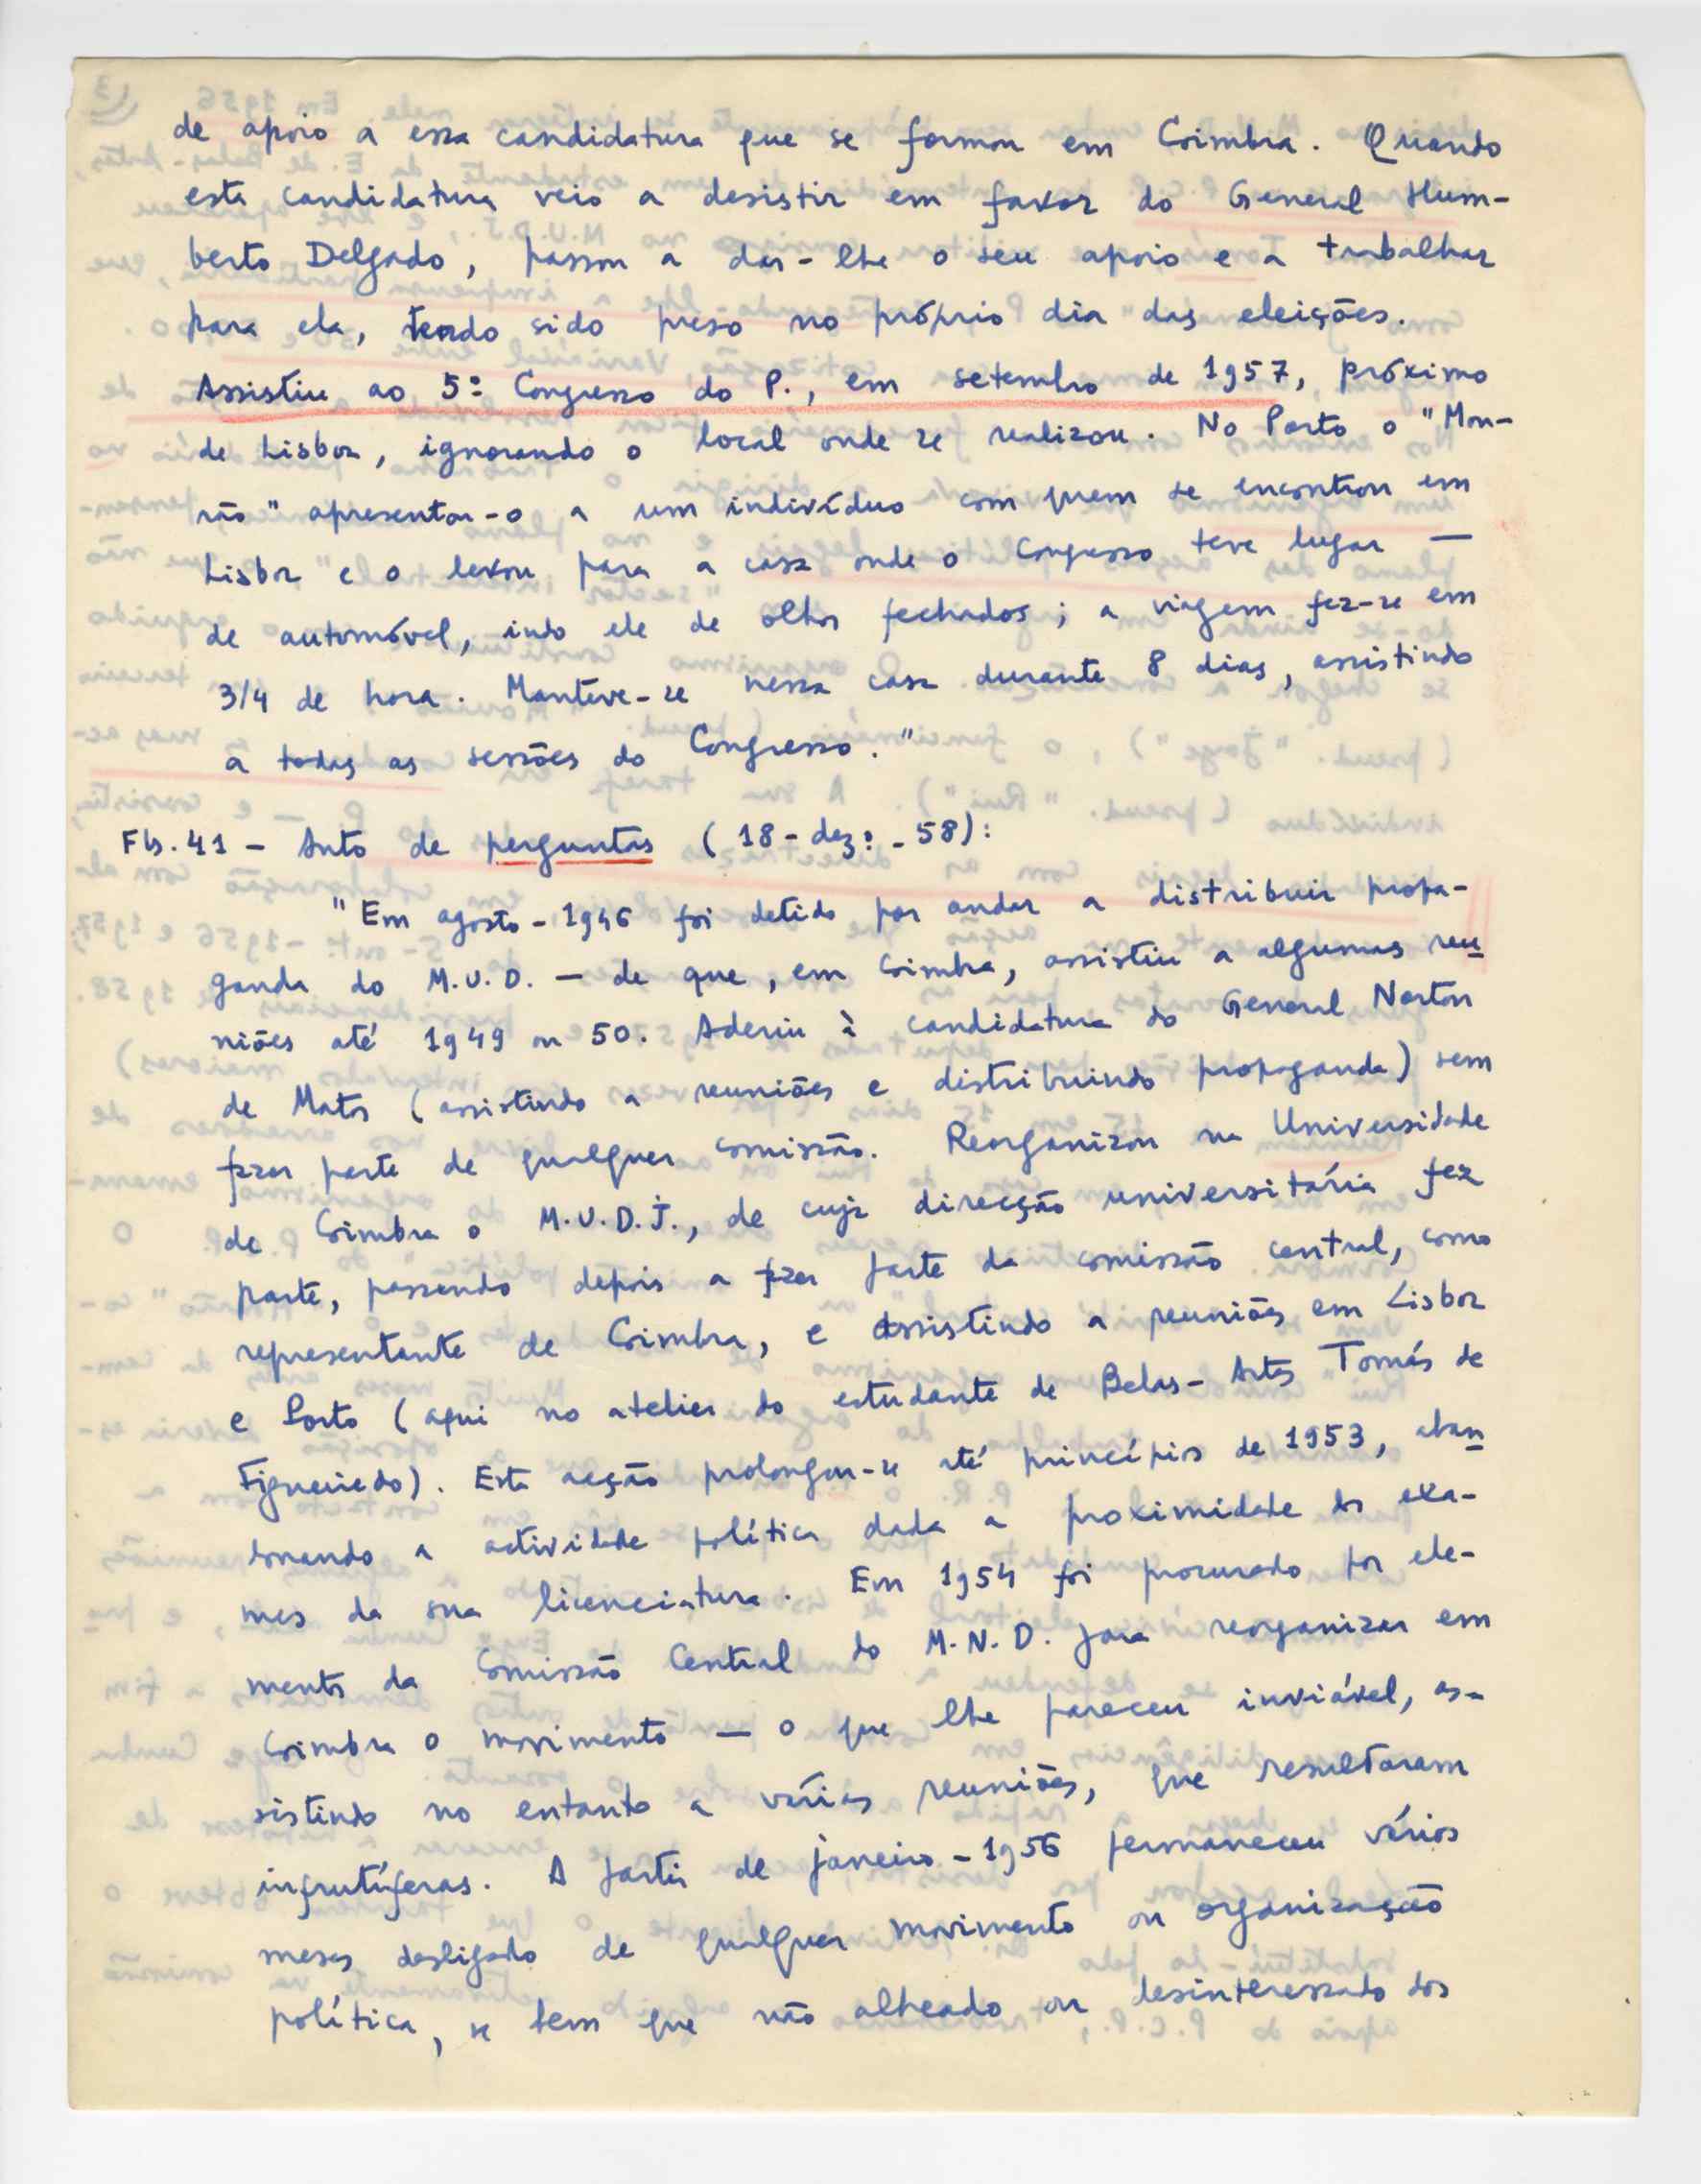 de apoio a essa candidatura que se formou em Coimbra. Quando
esta candidatura veio a desistir em favor do General Hum-
berto Delgado, passou a dar-lhe o seu apoio e a trabalhar
para ela, tendo sido preso no próprio dia das eleições.
Assistiu ao 5º Congresso do P., em setembro de 1957, próximo
de Lisboa, ignorando o local onde se realizou. No Porto o "Mon-
rão" apresentou-o a um indivíduo com quem se encontrou em
Lisboa e o levou para a casa onde o Congresso teve lugar —
de automóvel, indo ele de olhos fechados; a viagem fez-se em
3/4 de hora. Manteve-se nessa casa durante 8 dias, assistindo
a todas as sessões do Congresso."
Fls. 41 - Auto de perguntas (18-dezº-58):
"Em agosto-1946 foi detido por andar a distribuir propa-
ganda do M.U.D. — de que, em Coimbra, assistiu a algumas reu
niões até 1949 ou 50. Aderiu à candidatura do General Norton
de Matos (assistindo a reuniões e distribuindo propaganda) sem
fazer parte de qualquer comissão. Reorganizou na Universidade
de Coimbra o M.U.D.J., de cuja direcção universitária fez
parte, passando depois a fazer parte da comissão central, como
representante de Coimbra, e assistindo a reuniões em Lisboa
e Porto (aqui no atelier do estudante de Belas-Artes Tomás de
Figueiredo). Esta acção prolongou-se até princípios de 1953, aban
donando a actividade política dada a proximidade dos exa-
mes da sua licenciatura. Em 1954 foi procurado por ele-
mentos da Comissão Central do M.N.D. para reorganizar em
Coimbra o movimento — o que lhe pareceu inviável, as-
sistindo no entanto a várias reuniões, que resultaram
infrutíferas. A partir de janeiro-1956 permaneceu vários
meses desligado de qualquer movimento ou organização
política, se bem que não alheado ou desinteressado dos